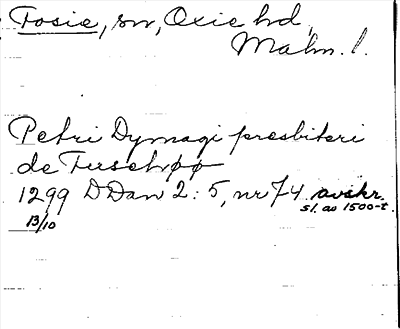 Tosie, sn, Oxie hd,
Malm. l.
Petri Dymagi presbiteri
de Tusehøø
1299 DDan 2:5, nr 74 avskr.
13/10 sl. av 1500-t.